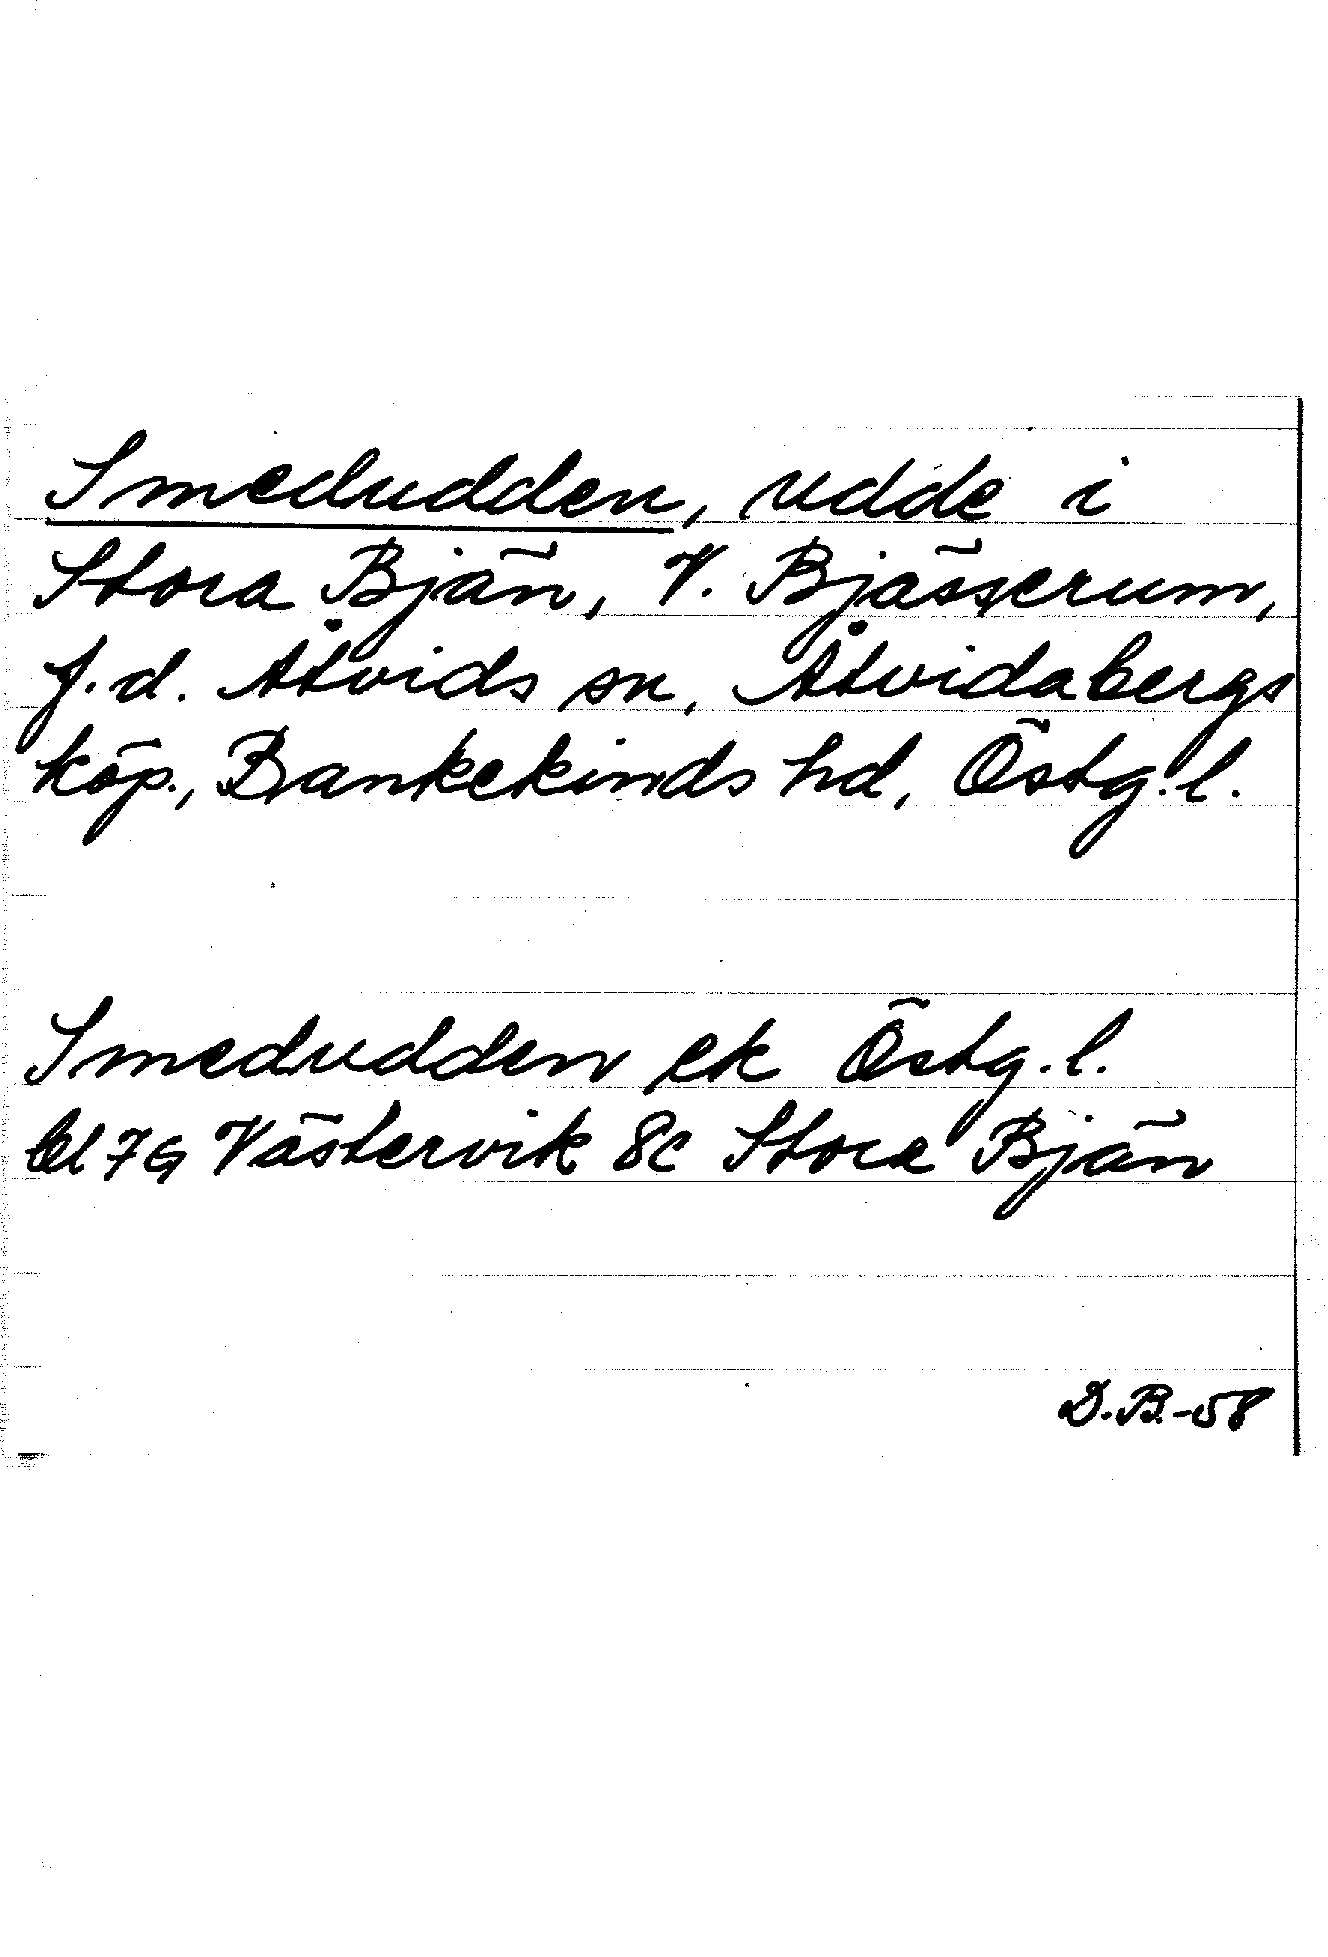 Smedudden, udde i
Stora Bjän, V. Bjässerum,
f.d. Åtvids sn, Åtvidabergs
köp., Bankekinds hd, Östg.l.
Smedudden ek Östg.l.
bl 7G Västervik 8c Stora Bjän
D.B.-58